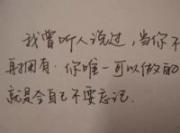 我曾听人说过,当你不
再拥有,你唯一可以做的
就是令自己不要忘记.